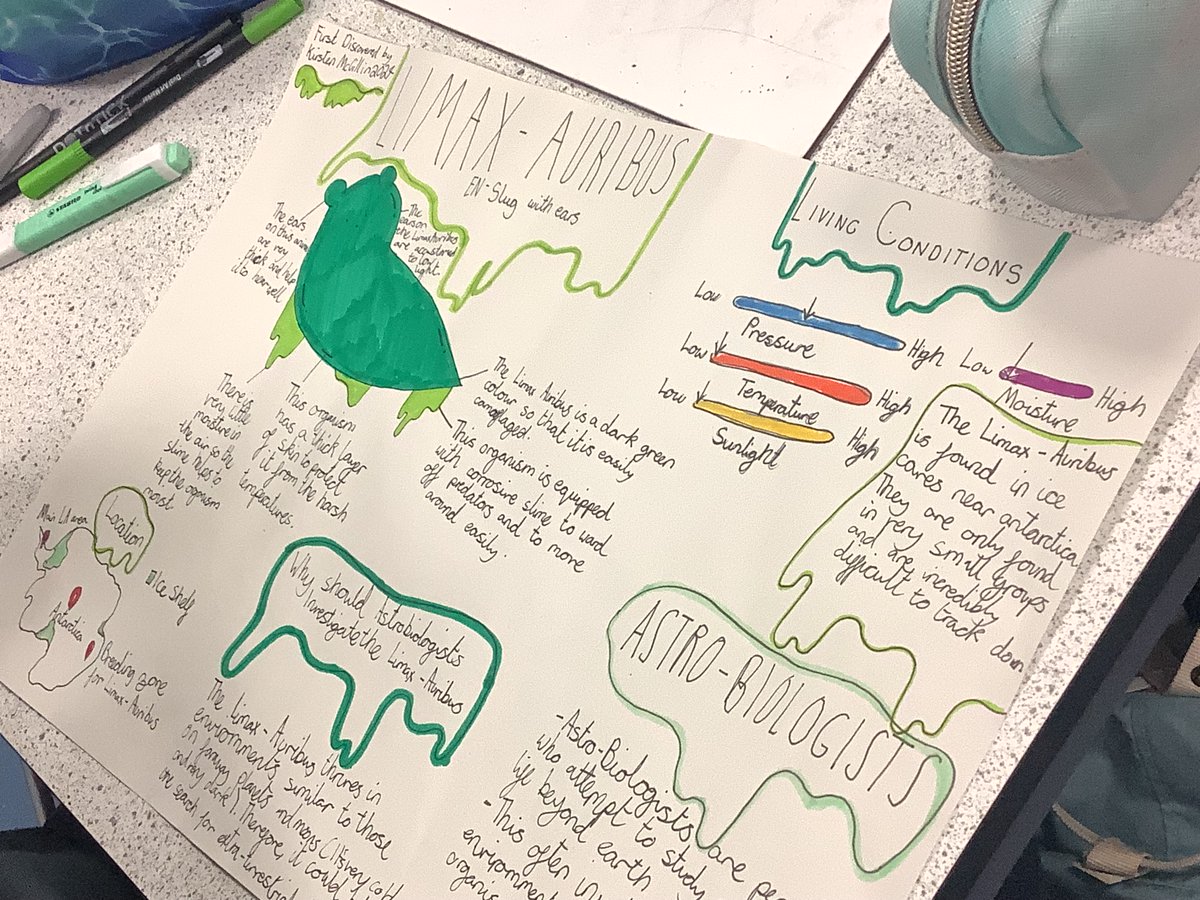 First Discovered by
Kirsten McGill in 2024
LIMAX-AURIBUS
EN-Slug with ears
The ears
on this
are very
thick and help
it to hear well
The
ears on
the Limax Auribus
are accustomed
to low
light.
There is
very little
moisture in
the air so the
slime helps to
keep the organism
moist
This organism
has a thick layer
of skin to protect
it from the harsh
temperatures.
The Limax Auribus is a dark green
colour so that it is easily
camoflaged.
This organism is equipped
with corrosive slime to ward
off predators and to move
around easily.
LIVING CONDITIONS
Low High
Pressure
Low High
Temperature
Low High
Sunlight
Low High
Moisture
The Limax-Auribus
is found in ice
caves near antarctica
They are only found
in very small groups
and are incredibly
difficult to track down
Location
Main LA area
Ice shelf
Antarctica
Breeding zone
for Limax-Auribus
Why should Astrobiologists
Investigate the Limax-Auribus
The Limax-Auribus thrives in
environments similar to those
on faraway planets and moons (It's very cold
and very dark). Therefore, it could
the search for extra-terrestrial
ASTRO-BIOLOGISTS
-Astro-Biologists are
who attempt to study
life beyond earth
-This often in
environment
STABILO